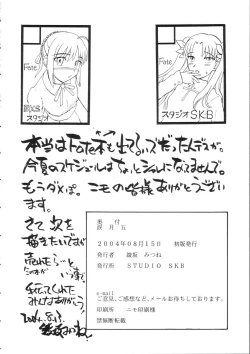 Fate
Fate
スタジオ
スタジオSKB
本当はFate本も出てるハズだったんですが。
今夏のスケジュールはちょっとシャレになってませんで。
もうダメぽ。ニモの皆様ありがとうござい
ます。
さて次を
描きたいですが
手に取ってくれた
みんなありがとう!
2004.8.13.
奥 付
誤 月 五
2004年08月15日 初版発行
発行者 綾坂 みつね
発行所 STUDIO SKB
e-mail
ご意見、ご感想など、メールお待ちしております。
印刷所 ニモ印刷様
禁無断転載